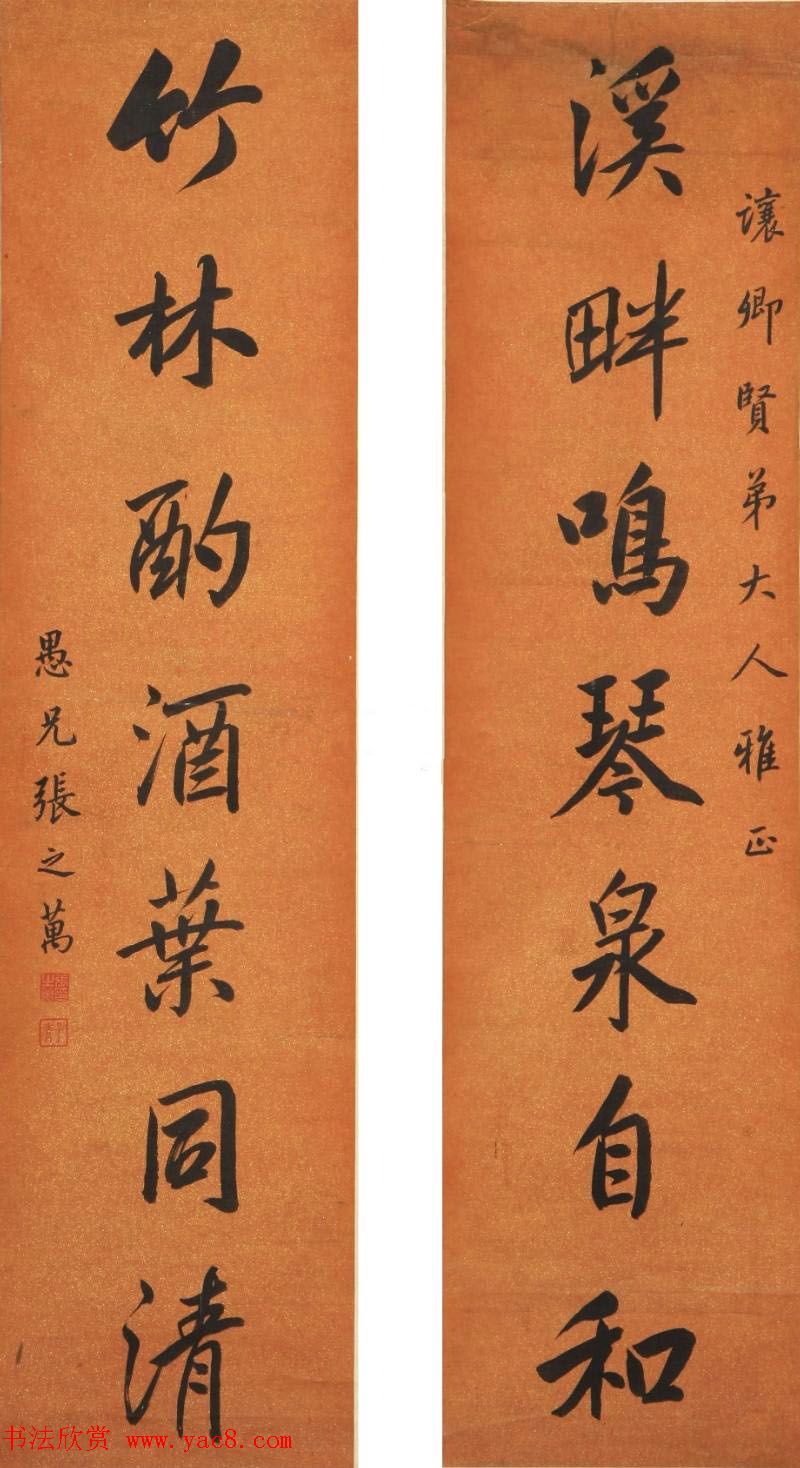 讓卿賢弟大人雅正
溪畔鳴琴泉自和
竹林酌酒葉同清
愚兄張之萬
书法欣赏 www.yac8.com